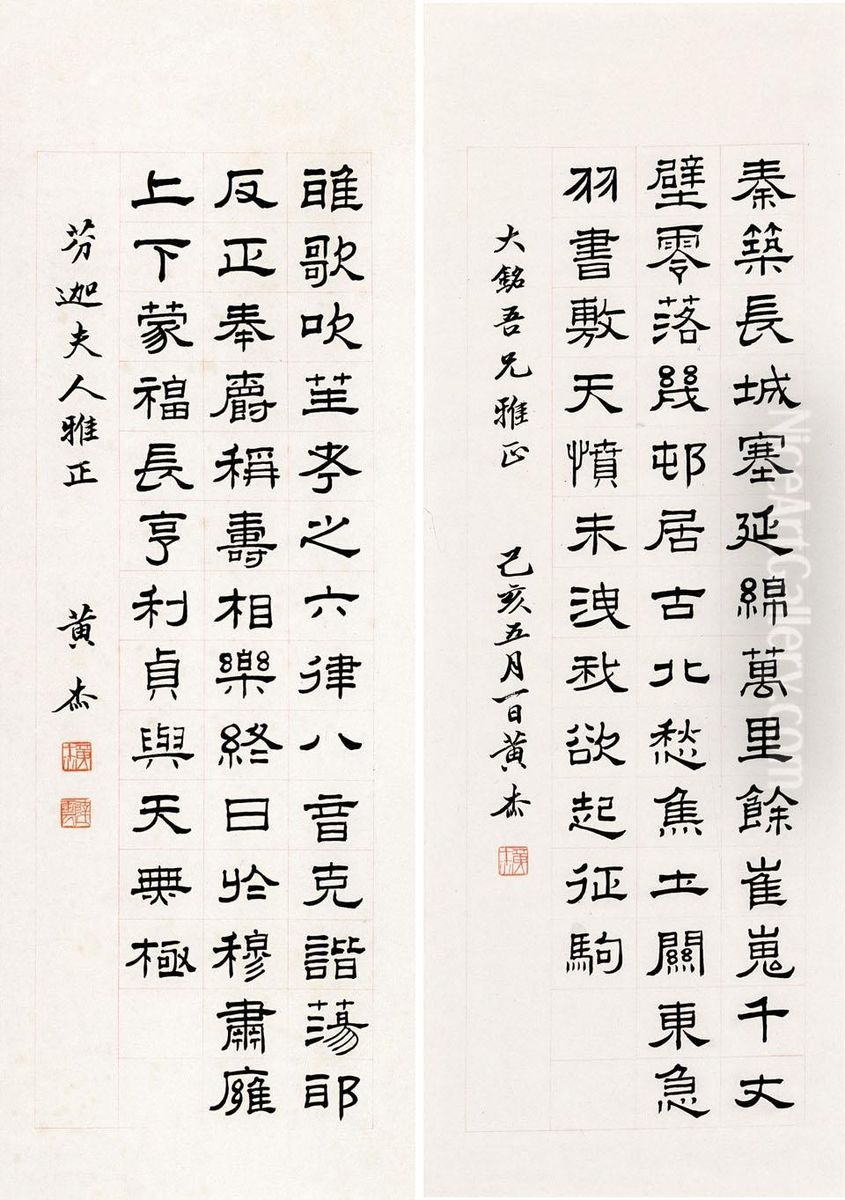 秦築長城塞延綿萬里餘崔嵬千丈
壁零落幾邨居古北愁焦土關東急
羽書敷天憤未洩我欲起征駒
大銘吾兄雅正 己亥五月一日黃杰
雅歌吹笙考之六律八音克諧蕩邪
反正奉爵稱壽相樂終日於穆肅雍
上下蒙福長亨利貞與天無極
芬迦夫人雅正 黃杰
NiceArtGallery.com